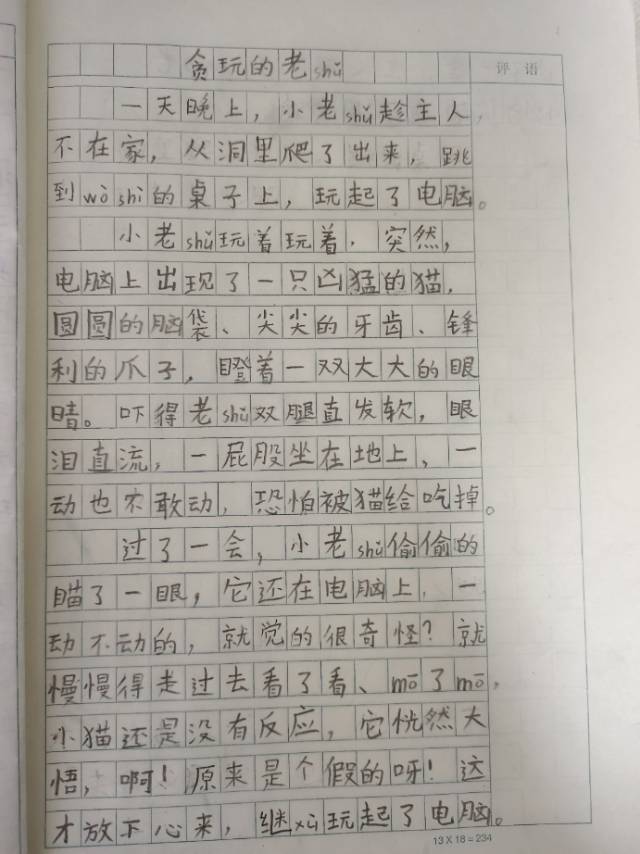 贪玩的老shǔ
评语
一天晚上，小老shǔ趁主人，
不在家，从洞里爬了出来，跳
到wò shì的桌子上，玩起了电脑。
小老shǔ玩着玩着，突然，
电脑上出现了一只凶猛的猫，
圆圆的脑袋、尖尖的牙齿、锋
利的爪子，瞪着一双大大的眼
睛。吓得老shǔ双腿直发软，眼
泪直流，一屁股坐在地上，一
动也不敢动，恐怕被猫给吃掉。
过了一会，小老shǔ偷偷的
瞄了一眼，它还在电脑上，一
动不动的，就觉的很奇怪？就
慢慢得走过去看了看、mō了mō，
小猫还是没有反应，它恍然大
悟，啊！原来是个假的呀！这
才放下心来，继xù玩起了电脑。
13×18=234